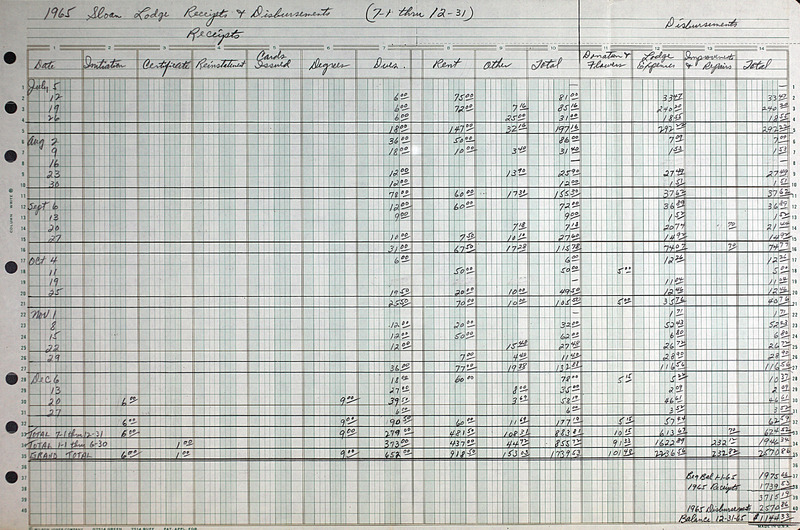 1965 Sloan Lodge Receipts & Disbursements (7-1 thru 12-31)
Receipts Disbursements
Date Initiation Certificate Reinstatement Cards Issued Degrees Dues Rent Other Total Donation & Flowers Lodge Expenses Improvements & Repairs Total
July 5
12 6 00 75 00 81 00 33 47 33 47
19 6 00 72 00 7 16 85 16 240 20 240 20
26 6 00 25 00 31 00 18 55 18 55
18 00 147 00 32 16 197 16 292 22 292 22
Aug 2 36 00 50 00 86 00 7 09 7 00
9 18 00 10 00 3 40 31 40 1 53 1 53
16
23 12 00 13 90 25 90 27 49 27 49
30 12 00 12 00 1 51 1 51
78 00 60 00 17 30 155 30 37 62 37 62
Sept 6 12 00 60 00 72 00 36 89 36 89
13 9 00 9 00 1 52 1 52
20 7 18 7 18 20 77 70 21 47
27 10 00 7 50 10 10 27 60 14 92 14 92
31 00 67 50 17 28 115 78 74 07 70 74 77
Oct 4 6 00 6 00 12 26 12 26
11 50 00 50 00 5 00 5 00
19 11 04 11 04
25 19 50 20 00 10 00 49 50 12 46 12 46
25 50 70 00 10 00 105 50 5 00 35 76 40 76
Nov 1 1 71 1 71
8 12 00 20 00 32 00 52 43 52 43
15 12 00 50 00 62 00 6 80 6 80
22 12 00 15 48 27 48 26 72 26 72
29 7 00 4 40 11 40 28 90 28 90
36 00 77 00 19 88 132 88 116 56 116 56
Dec 6 18 00 60 00 78 00 5 15 5 22 10 37
13 27 00 8 00 35 00 2 09 2 09
20 6 00 9 00 39 50 3 69 58 19 46 61 46 61
27 6 00 6 00 3 52 3 52
6 00 9 00 90 50 60 00 11 69 177 19 5 15 57 44 62 59
TOTAL 7-1 thru 12-31 6 00 9 00 279 00 481 50 108 31 883 81 10 15 613 67 70 624 52
TOTAL 1-1 thru 6-30 1 00 373 00 437 00 44 72 855 72 91 33 1622 89 232 12 1946 34
GRAND TOTAL 6 00 1 00 9 00 652 00 918 50 153 03 1739 53 101 48 2236 56 232 82 2570 86
Beg Bal 1-1-65 1975 66
1965 Receipts 1739 53
3715 19
1965 Disbursements 2570 86
Balance 12-31-65 $1144 33